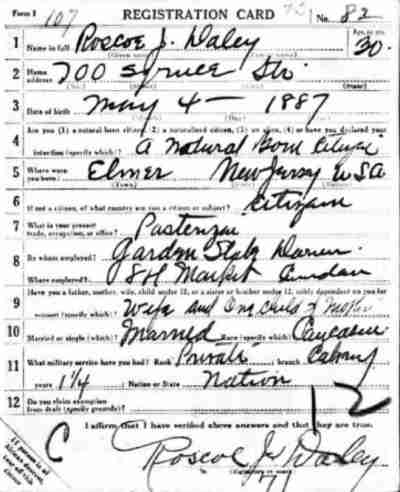 Form 1 107 REGISTRATION CARD No. 82
1 Name in full Roscoe J. Daley Age, in yrs. 30.
2 Home address 700 Spruce Str.
3 Date of birth May 4 — 1887
4 Are you (1) a natural born citizen, (2) a naturalized citizen, (3) an alien, (4) or have you declared your
intention (specify which)? a Natural Born Citizen
5 Where were you born? Elmer New Jersey USA
(Town) (State) (Nation)
6 If not a citizen, of what country are you a citizen or subject? Citizen
7 What is your present trade, occupation, or office?
8 By whom employed?
Where employed? Market Camden
9 Have you a father, mother, wife, child under 12, or a sister or brother under 12, solely dependent on you for
support (specify which)? Wife and One child & Mother
10 Married or single (which)? Married Race (specify which)? Caucasian
11 What military service have you had? Rank Private branch Cavalry
years 1 1/4 Nation or State Nation
12 Do you claim exemption from draft (specify grounds)?
I affirm that I have verified above answers and that they are true.
C 12
Roscoe J. Daley